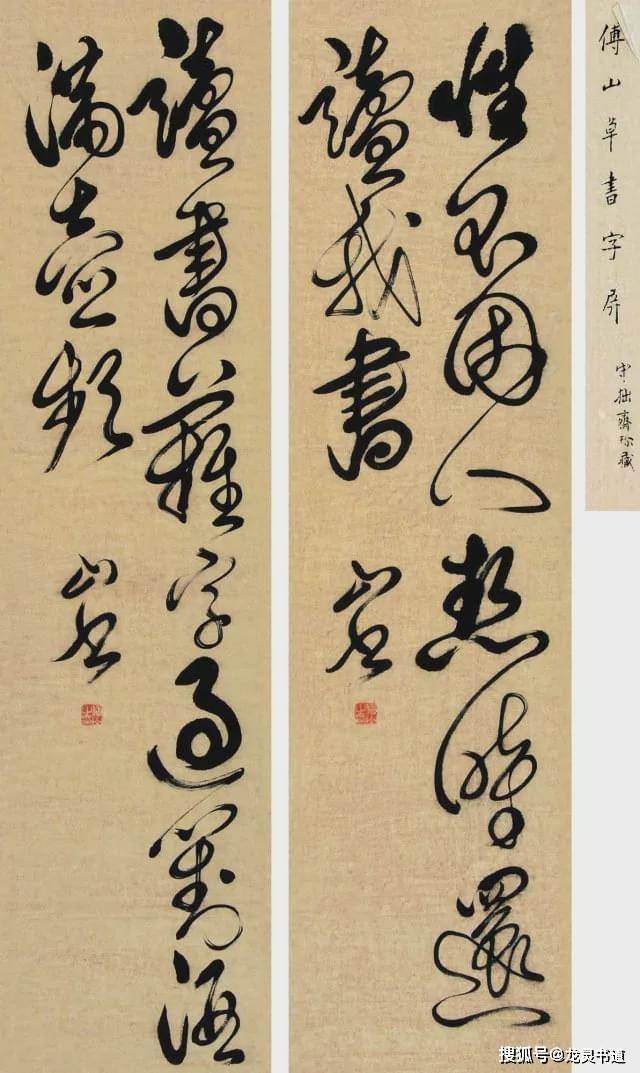 傅山草書字屏
守拙齋珍藏
性不因人熱時還
讀我書
山書
讀書難字過對酒
滿壺頻
山書
搜狐号@龙灵书道